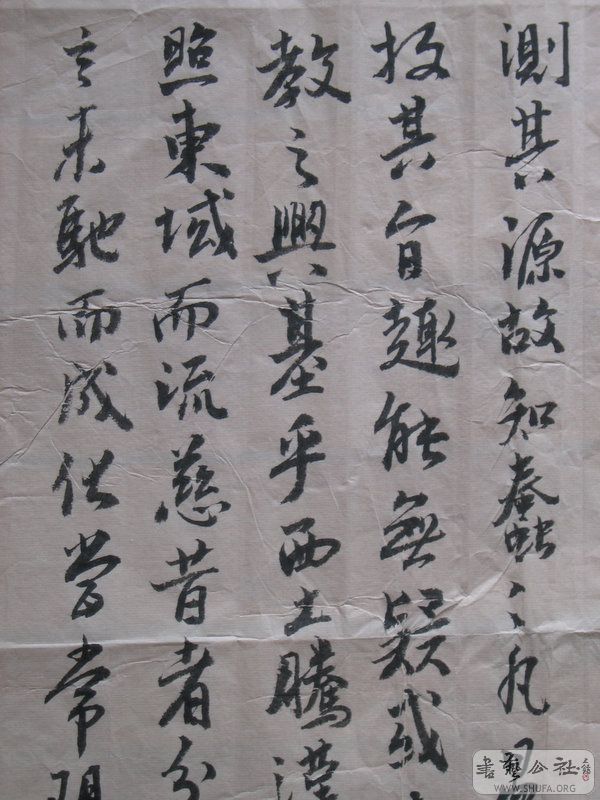 測其源故知蠢蠢凡
投其旨趣能無疑或
教之興基乎西土騰漢
照東域而流慈昔者分
言未馳而成化當常現
書藝公社
WWW.SHUFA.ORG